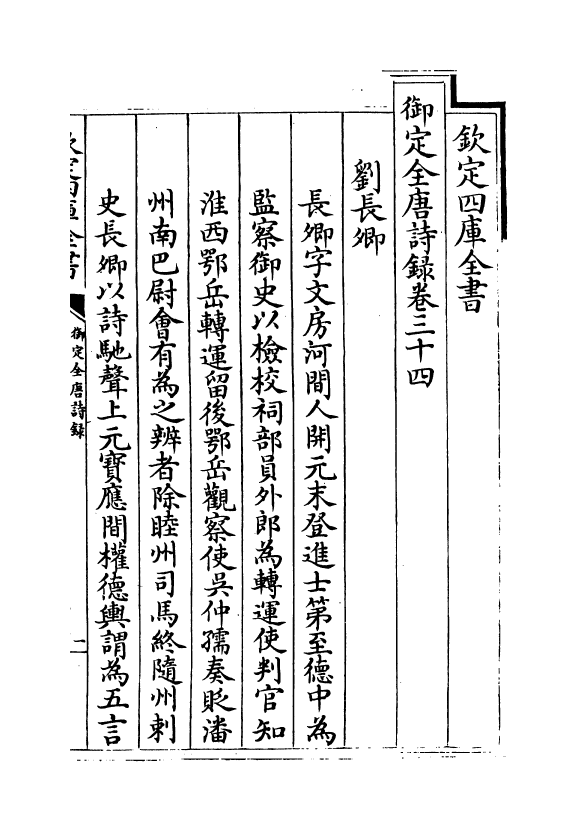 欽定四庫全書
御定全唐詩錄卷三十四
劉長卿
長卿字文房河間人開元末登進士第至德中為
監察御史以檢校祠部員外郎為轉運使判官知
淮西鄂岳轉運留後鄂岳觀察使吳仲孺奏貶潘
州南巴尉會有為之辨者除睦州司馬終隨州刺
史長卿以詩馳聲上元寶應間權德輿謂為五言
欽定四庫全書
御定全唐詩錄